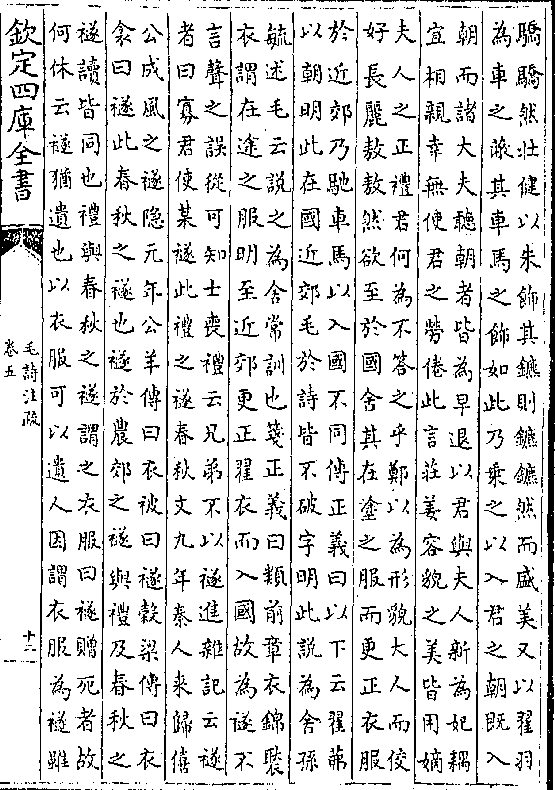 驕驕然壯健以朱飾其鑣則鑣鑣然而盛美又以翟羽
為車之蔽其車馬之飾如此乃乗之以入君之朝既入
朝而諸大夫聽朝者皆為早退以君與夫人新為妃耦
宜相親幸無使君之勞倦此言莊姜容貌之美皆用嫡
夫人之正禮君何為不答之乎鄭以為形貌大人而佼
好長麗敖敖然欲至於國舍其在塗之服而更正衣服
於近郊乃馳車馬以入國不同傳正義曰以下云翟茀
以朝明此在國近郊毛於詩皆不破字明此說為舍孫
毓述毛云說之為舍常訓也箋正義曰類前章衣錦褧
衣謂在途之服明至近郊更正翟衣而入國故為襚不
言聲之誤從可知士喪禮云兄弟不以襚進雜記云襚
者曰寡君使某襚此禮之襚春秋文九年秦人來歸僖
公成風之襚隐元年公羊傳曰衣被曰襚穀梁傳曰衣
衾曰襚此春秋之襚也襚於農郊之襚與禮及春秋之
襚讀皆同也禮與春秋之襚謂之衣服曰襚贈死者故
何休云襚猶遺也以衣服可以遺人因謂衣服為襚雖
欽定四庫全書
毛詩注疏
卷五
十二